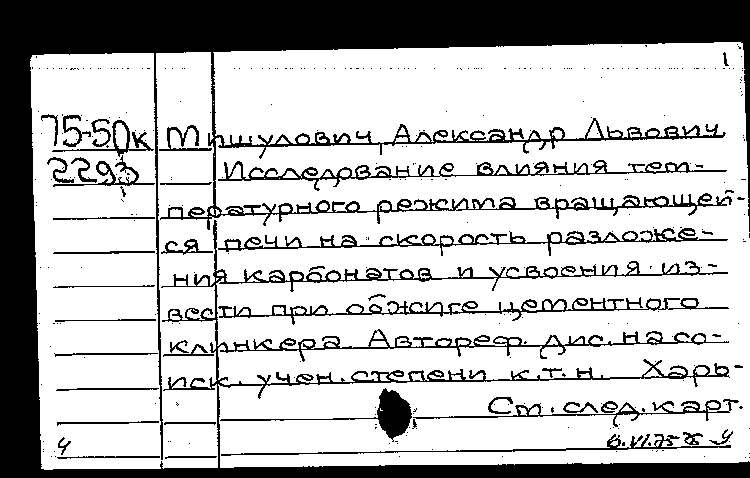 1
75-50к Мишулович, Александр Львович
2293 Исследование влияния тем-
пературного режима вращающей-
ся печи на скорость разложе-
ния карбонатов и усвоения из-
вести при обжиге цементного
клинкера. Автореф. дис. на со-
иск. учен. степени к.т.н. Харь-
См. след. карт.
4